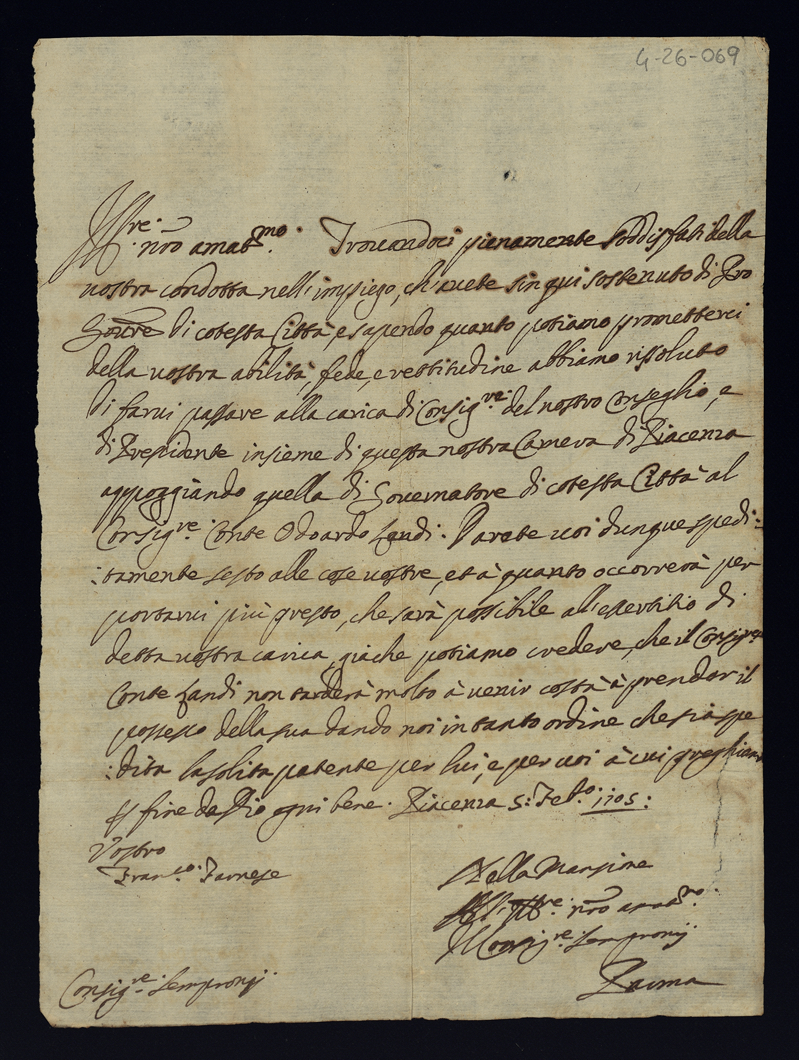 4-26-069
Ill.re
nr̃o amat.mo. Trovandoci pienamente soddisfati della
vostra condotta nell'impiego, ch'avete sin qui sostenuto di Gov
di cotesta Città, e sapendo quanto potiamo prometterci
della vostra abilità, fede, e rettitudine abbiamo rissoluto
di farvi passare alla carica di Consig.re del nostro Conseglio, e
di Presidente insieme di questa nostra Camera di Piacenza
appoggiando quella di Governatore di cotesta Città al
Consig.re Conte Odoardo Landi. Darete voi dunque spedi:
:tamente sesto alle cose vostre, et à quanto occorrerà per
portarvi più presto, che sarà possibile all'esercitio di
detta vostra carica, giache potiamo credere, che il Consig.re
Conte Landi non tarderà molto à venir costà à prender il
possesso della sua dando noi intanto ordine che sia spe
:dita la solita patente per lui, e per voi à cui preghiamo
fine da Dio ogni bene. Piacenza 5: Feb.o 1705:
Vostro
Fran.co Farnese
Nella Mansione
All'Ill.re nr̃o amat.mo
Il Consig.re Sempronij
Parma
Consig.re Sempronij